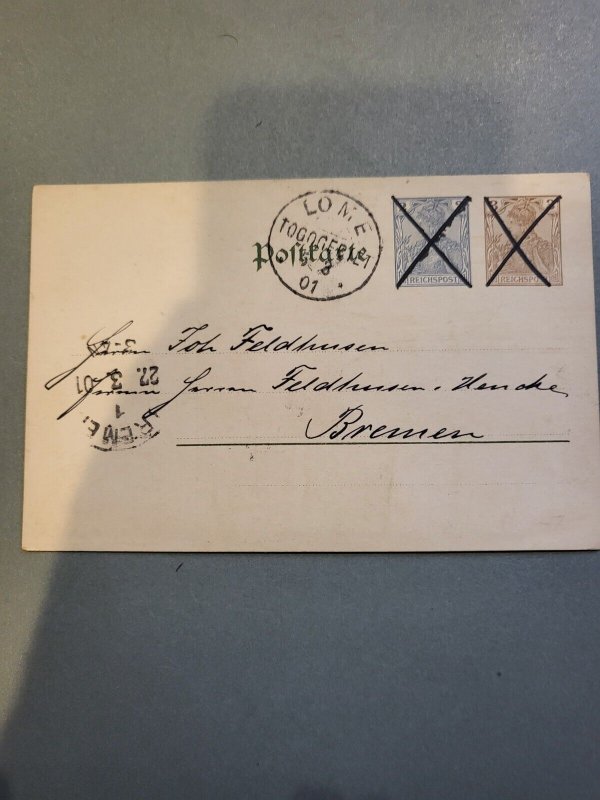 LOME
TOGOGEBIET
3
01
Postkarte
2
REICHSPOST
3
REICHSPOST
Herrn Joh Feldhusen
Herren Feldhusen & Hencke
Bremen
27. 3. 01
1
BREMEN